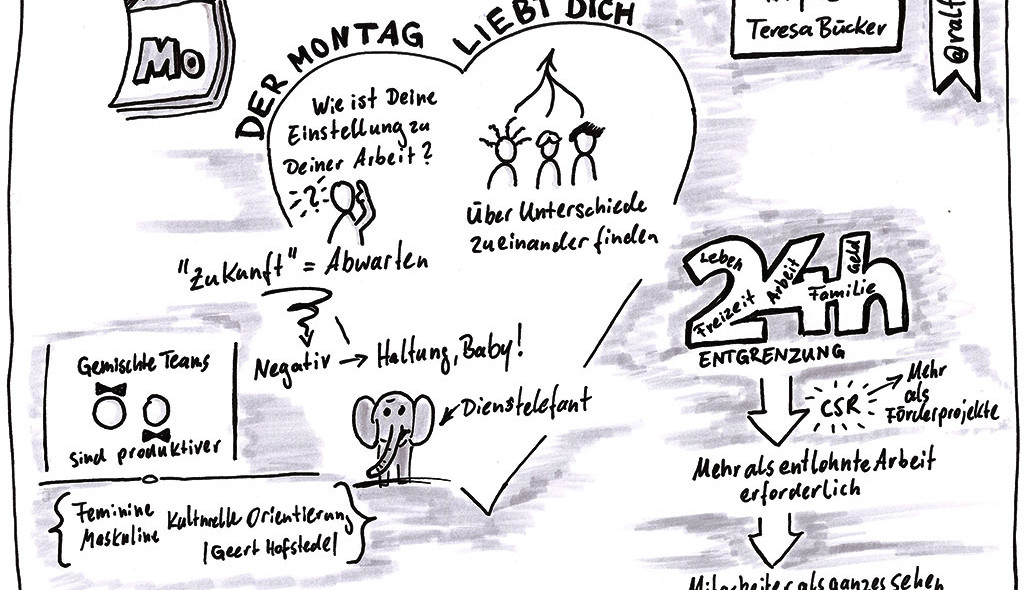 Mo
DER MONTAG LIEBT DICH
Teresa Bücker
@ralf
Wie ist Deine
Einstellung zu
Deiner Arbeit?
?
"Zukunft" = Abwarten
Negativ → Haltung, Baby!
Dienstelefant
Über Unterschiede
zueinander finden
Gemischte Teams
sind produktiver
Feminine
Maskuline
Kulturelle Orientierung
|Geert Hofstede|
24h
Leben
Freizeit
Arbeit
Familie
Geld
ENTGRENZUNG
CSR
Mehr
als
Förderprojekte
Mehr als entlohnte Arbeit
erforderlich
Mitarbeiter als ganzes sehen